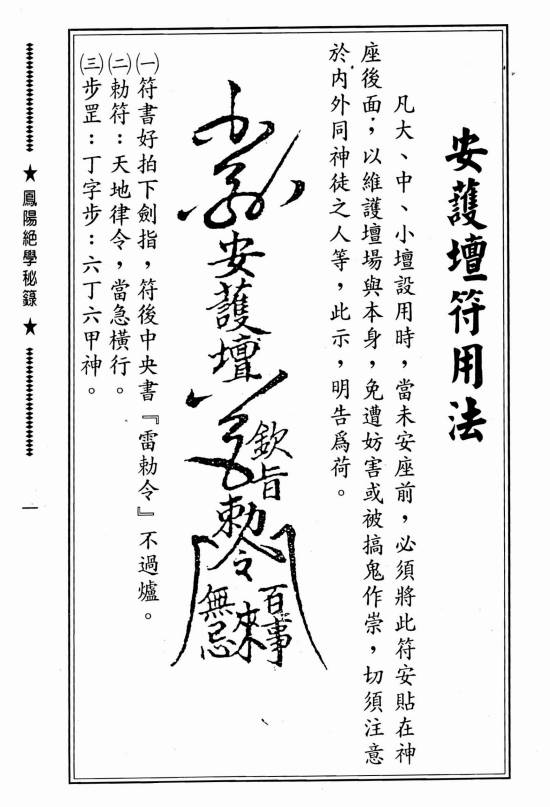 安護壇符用法
凡大、中、小壇設用時，當未安座前，必須將此符安貼在神
座後面；以維護壇場與本身，免遭妨害或被搞鬼作祟，切須注意
於內外同神徒之人等，此示，明告爲荷。
安護壇
欽旨
勅令
百事
來
無忌
㈠符書好拍下劍指，符後中央書『雷勅令』不過爐。
㈡勅符：天地律令，當急橫行。
㈢步罡：丁字步：六丁六甲神。
★鳳陽絕學秘錄★
一